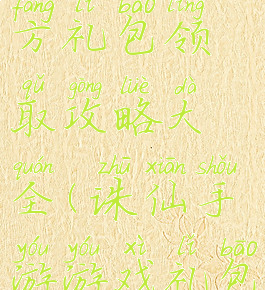 fāng lǐ bāo lǐng
方礼包领
qǔ gōng lüè dà
取攻略大
quán zhū xiān shǒu
全(诛仙手
yóu yóu xì lǐ bāo
游游戏礼包